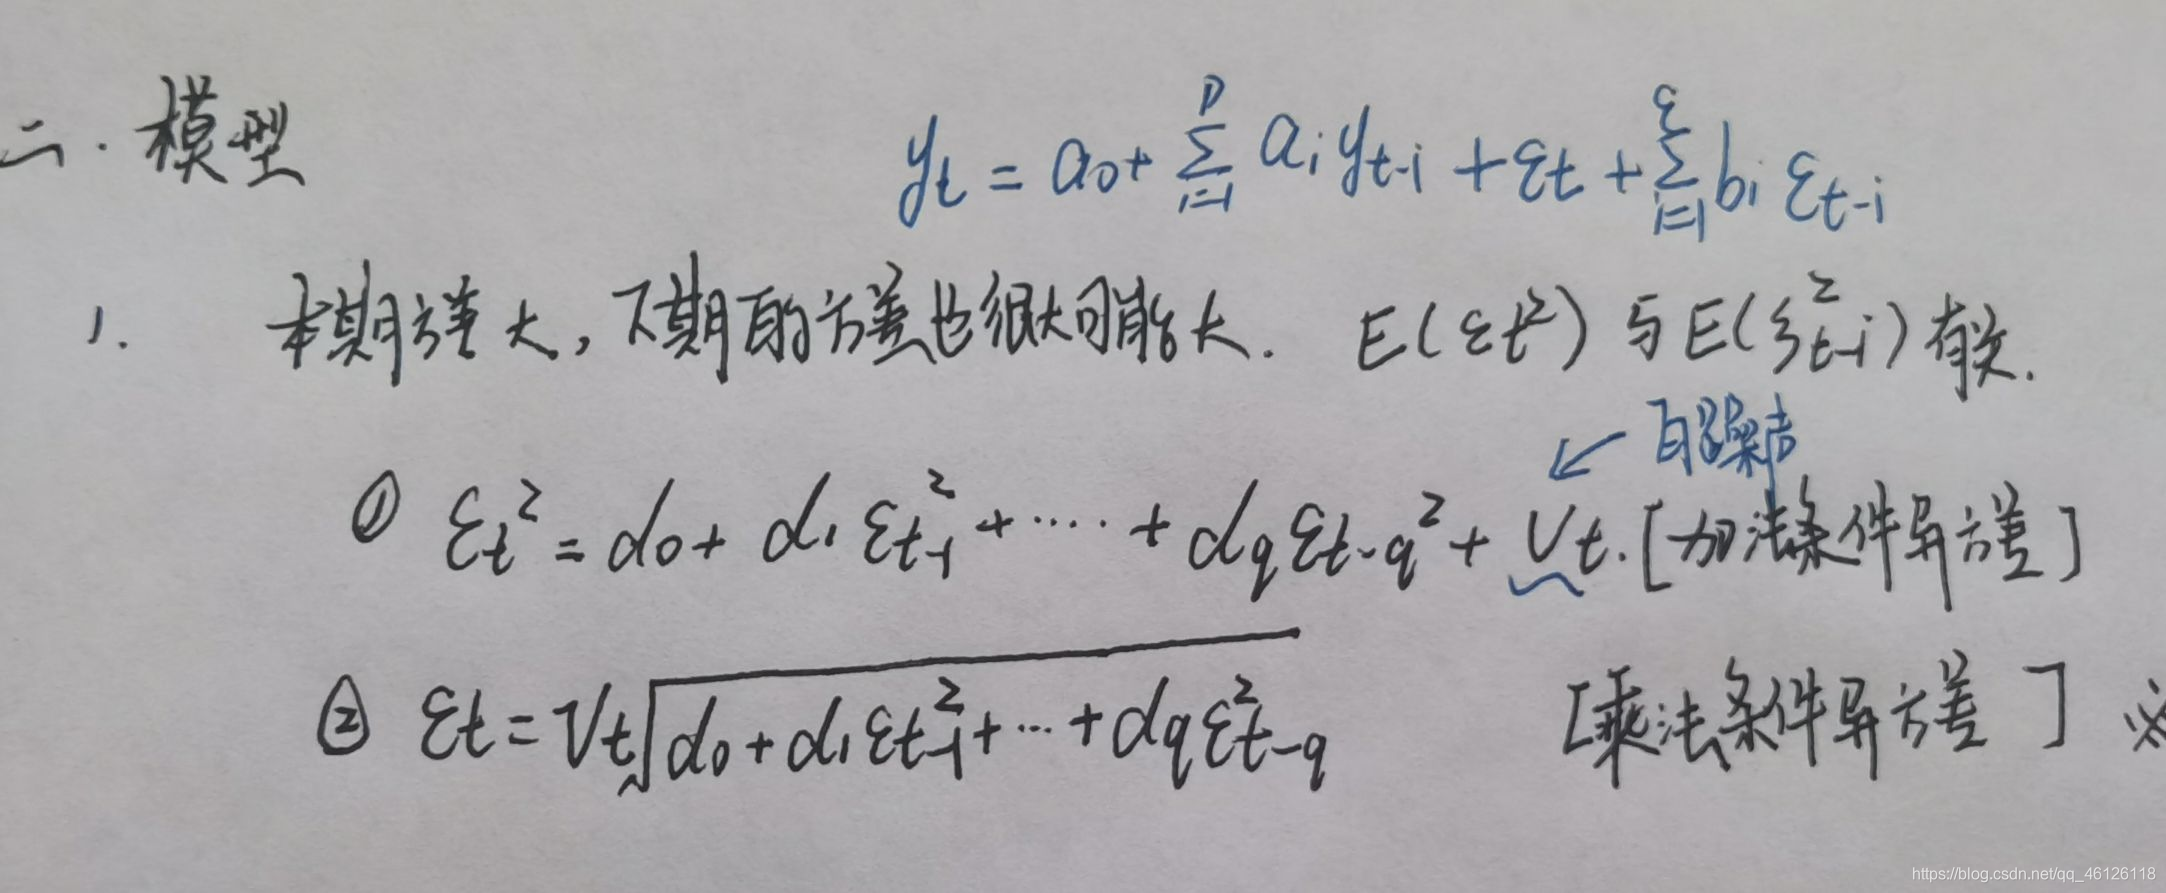 二.模型
y_t = a_0 + \sum_{i=1}^{p} a_i y_{t-i} + ε_t + \sum_{i=1}^{ε} b_i ε_{t-i}
1. 本期方差大,下期的方差也很大可能大. E(ε_t^2) 与 E(ξ_{t-i}^2) 有关.
← 白噪声
① ε_t^2 = α_0 + α_1 ε_{t-1}^2 + ···· + α_q ε_{t-q}^2 + V_t. [加法条件异方差]
② ε_t = V_t \sqrt{α_0 + α_1 ε_{t-1}^2 + ··· + α_q ε_{t-q}^2} [乘法条件异方差] ※
https://blog.csdn.net/qq_46126118